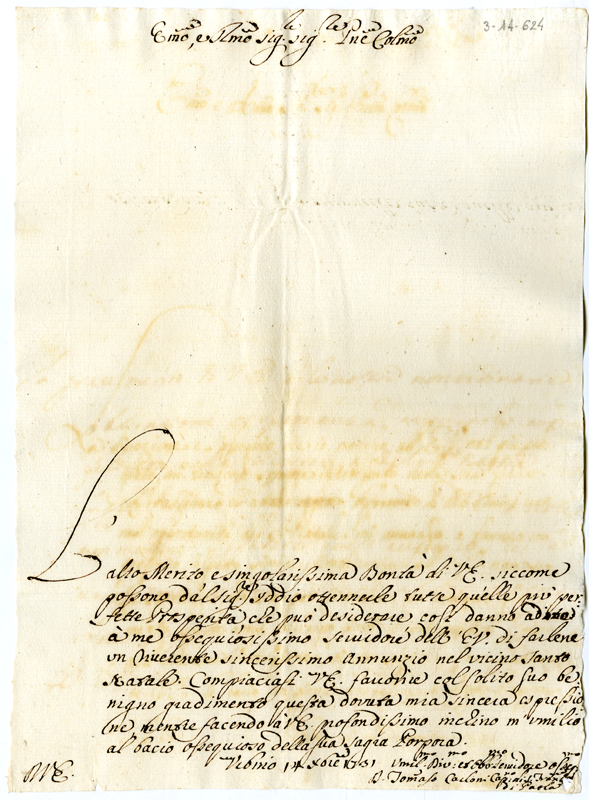 Emo, e Rmo Sig. Sig.re Pne Colmo
3-14-624
L'alto Merito e singolarissima Bontà di V.E. siccome
possono dal Sig.re Iddio ottennerle tutte quelle più per
fette Prosperità che può desiderare così danno
à me ossequiosissimo servidore dell'E.V. di farlene
un riverente sincerissimo Annunzio nel vicino Santo
Natale. Compiaciasi V.E. favorire col solito suo be
nigno gradimento questa dovuta mia sincera espressio
ne mentre facendo à V.E. profondissimo inclino m'umilio
al bacio ossequioso della sua sagra Porpora.
Urbino 14 Xbre 1731
Umilmo Divmo et Obbmo Servidore
D. Tomaso Carloni